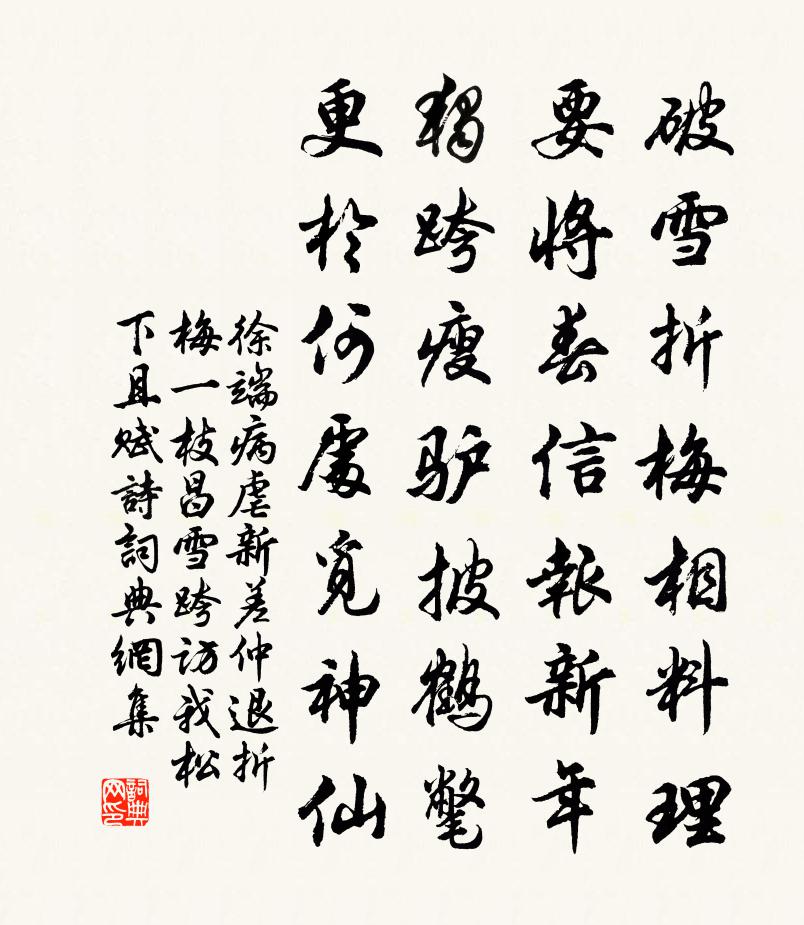 破雪折梅相料理
要将春信報新年
独跨瘦驴披鶴氅
更於何處覓神仙
徐端病虐新差仲退折
梅一枝昌雪跨访我松
下且赋詩詞典網集
詞典网印